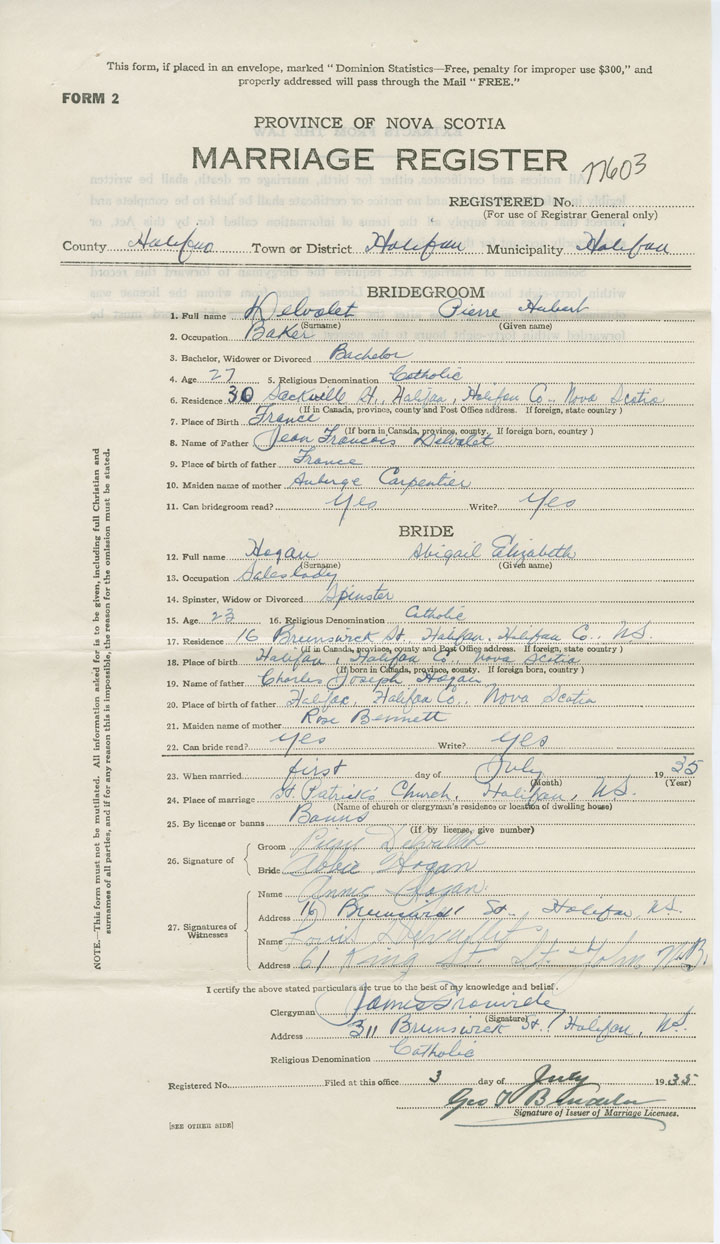 This form, if placed in an envelope, marked "Dominion Statistics—Free, penalty for improper use $300," and
properly addressed will pass through the Mail "FREE."
FORM 2
PROVINCE OF NOVA SCOTIA
MARRIAGE REGISTER 77603
REGISTERED No.
(For use of Registrar General only)
County Halifax Town or District Halifax Municipality Halifax
BRIDEGROOM
1. Full name Delvalet Pierre Hubert
(Surname) (Given name)
2. Occupation Baker
3. Bachelor, Widower or Divorced Bachelor
4. Age 27 5. Religious Denomination Catholic
6. Residence 30 Sackville St., Halifax, Halifax Co., Nova Scotia
(If in Canada, province, county and Post Office address. If foreign, state country)
7. Place of Birth France
(If born in Canada, province, county. If foreign born, country)
8. Name of Father Jean Francois Delvalet
9. Place of birth of father France
10. Maiden name of mother Auberge Carpentier
11. Can bridegroom read? Yes Write? Yes
BRIDE
12. Full name Hogan Abigail Elizabeth
(Surname) (Given name)
13. Occupation Saleslady
14. Spinster, Widow or Divorced Spinster
15. Age 23 16. Religious Denomination Catholic
17. Residence 16 Brunswick St., Halifax, Halifax Co., N.S.
(If in Canada, province, county and Post Office address. If foreign, state country)
18. Place of birth Halifax, Halifax Co., Nova Scotia
(If born in Canada, province, county. If foreign born, country)
19. Name of father Charles Joseph Hogan
20. Place of birth of father Halifax, Halifax Co., Nova Scotia
21. Maiden name of mother Rose Bennett
22. Can bride read? Yes Write? Yes
23. When married first day of July 1935
(Month) (Year)
24. Place of marriage St. Patrick's Church, Halifax, N.S.
(Name of church or clergyman's residence or location of dwelling house)
25. By license or banns Banns
(If by license, give number)
26. Signature of
Groom Pierre
Bride Abbie Hogan
27. Signatures of Witnesses
Name Annie Hogan
Address 16 Brunswick St. Halifax, N.S.
Name Louis
Address 61 King St. St. John N.B.
I certify the above stated particulars are true to the best of my knowledge and belief.
Clergyman James
(Signature)
Address 311 Brunswick St., Halifax, N.S.
Religious Denomination Catholic
Registered No. Filed at this office 3 day of July 1935
Geo
Signature of Issuer of Marriage Licenses.
[SEE OTHER SIDE]
NOTE.—This form must not be mutilated. All information asked for is to be given, including full Christian and
surnames of all parties, and if for any reason this is impossible, the reason for the omission must be stated.